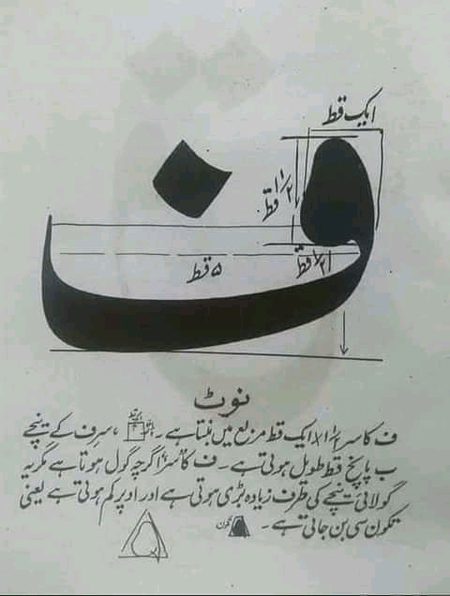 ایک قط
ف
۱ ۱/۲ قط
۱/۲ قط
۵ قط
نوٹ
ف کا سر ۱/۲ ۱ x ایک قط مربع میں بنتا ہے۔ ، سرف کے نیچے
ب پانچ قط طویل ہوتی ہے۔ ف کا سر اگرچہ گول ہوتا ہے مگر یہ
گولائی نیچے کی طرف زیادہ بڑی ہوتی ہے اور اوپر کم ہوتی ہے یعنی
تکون سی بن جاتی ہے۔ تکون